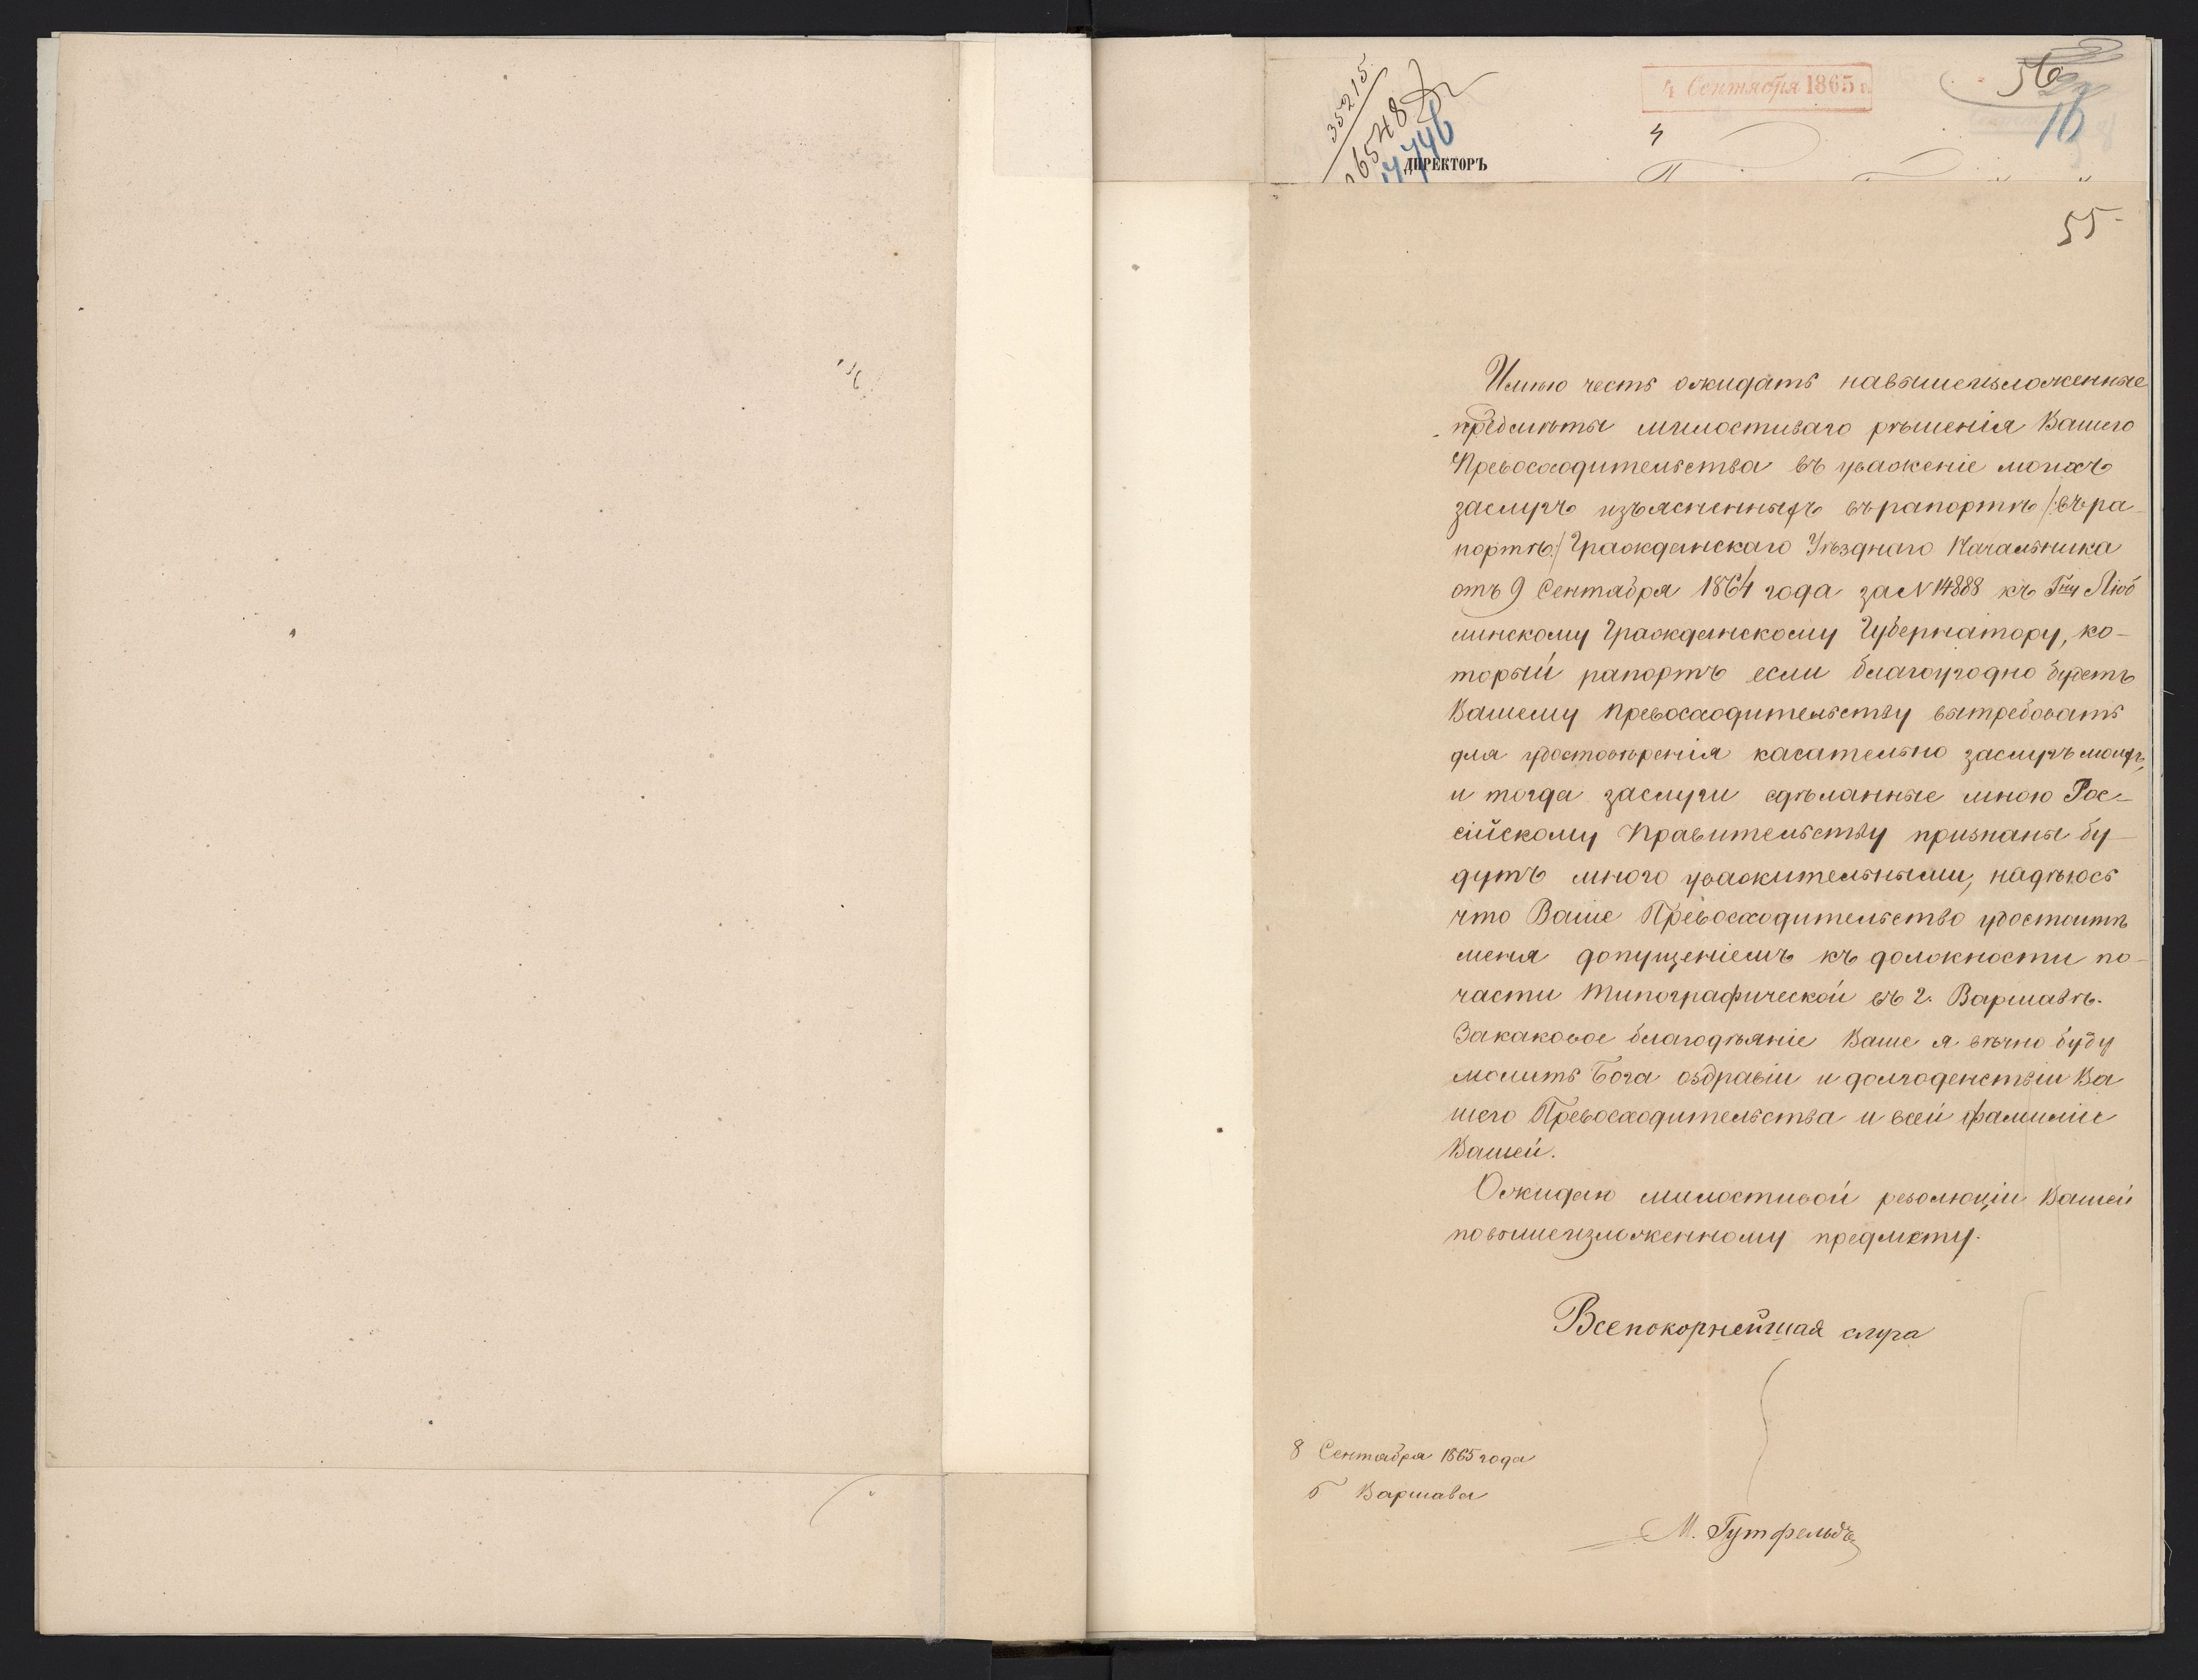 35215
6548
7746
ДИРЕКТОРЪ
4 Сентября 1865 г.
4
56
16
55
Имѣю честь ожидать навышеизложенные
предмѣты милостиваго рѣшенія Вашего
Превосходительства въ уваженіе моихъ
заслугъ изъясненныхъ върапортѣ /:въ ра-
портѣ:/ Гражданскаго Уѣзднаго Начальника
отъ 9 Сентября 1864 года за N 14888 къ Гну Люб
линскому Гражданскому Губернатору, ко-
торый рапортъ если благоугодно будетъ
Вашему Превосходительству вытребовать
для удостовѣренія касательно заслугъ моихъ,
и тогда заслуги сдѣланные мною Рос-
сійскому Правительству признаны бу-
дутъ много уважительными, надѣюсь
что Ваше Превосходительство удостоитъ
меня допущеніемъ къ должности по-
части типографической въ г. Варшавѣ.
Закаковое благодѣяніе Ваше я вѣчно буду
молить Бога оздравіи и долгоденствіи Ва
шего Превосходительства и всей фамиліи
Вашей.
Ожидаю милостивой резолюціи Вашей
повышеизложенному предмету.
Всепокорнейшая слуга
8 Сентября 1865 года
Г Варшава
М. Гутфельдъ